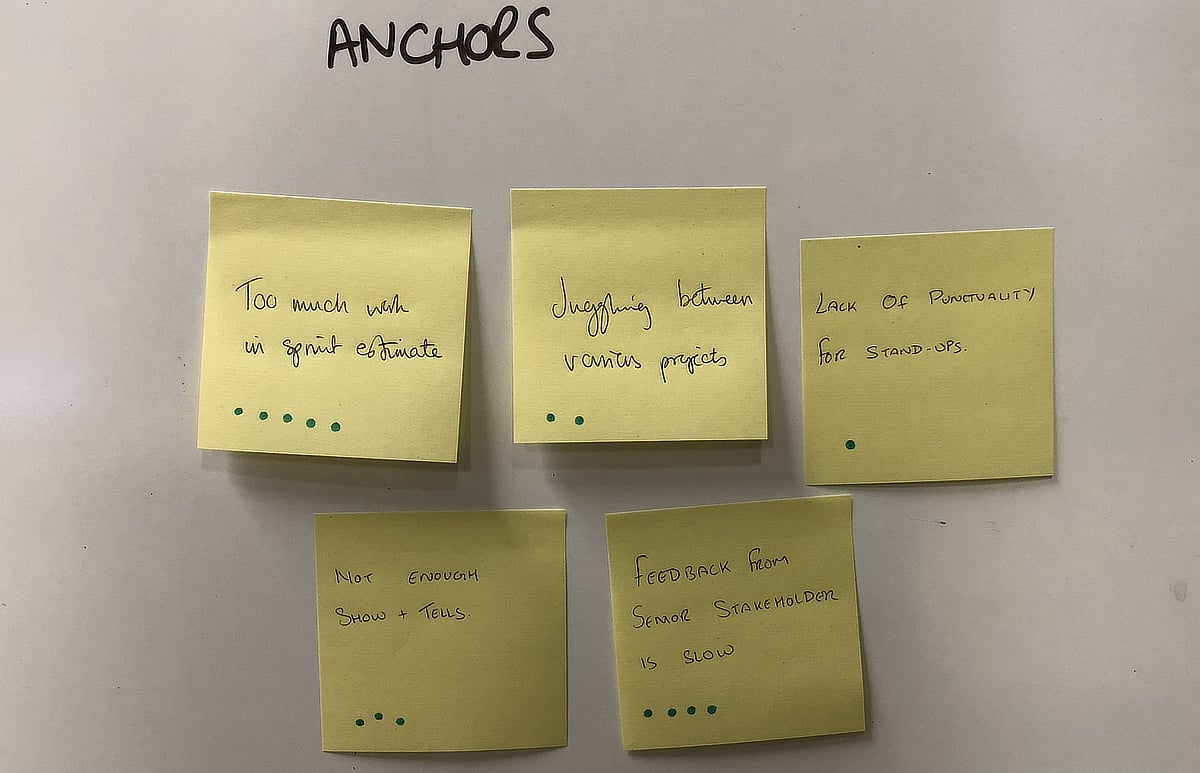 ANCHORS
Too much work
in sprint estimate
Juggling between
various projects
LACK OF PUNCTUALITY
FOR STAND-UPS.
NOT ENOUGH
SHOW + TELLS.
FEEDBACK FROM
SENIOR STAKEHOLDER
IS SLOW